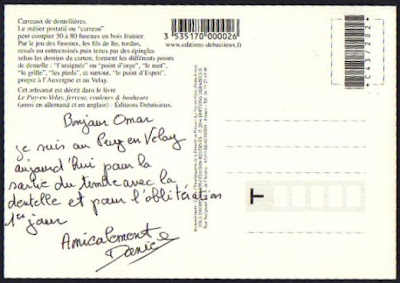 Carreaux de dentellières.
Le métier portatif ou "carreau"
peut compter 50 à 80 fuseaux en bois fruitier.
Par le jeu des fuseaux, les fils de lin, tordus,
croisés ou entrecroisés puis tenus par des épingles
selon les dessins du carton, forment les différents points
de dentelle : "l'araignée" ou "point d'orge", "le mat",
"la grille", "les pieds", et surtout, "le point d'Esprit",
propre à l'Auvergne et au Velay.
Cet artisanat est décrit dans le livre
Le Puy-en-Velay, ferveur, couleurs & bonheurs
(aussi en allemand et en anglais) - Éditions Debaisieux.
3 535170 000026
www.editions-debaisieux.fr
C43/202
Bonjour Omar
je suis au Puy en Velay
aujourd'hui pour la
sortie du timbre avec la
dentelle et pour l'oblitération
1er jour
Amicalement
Daniel
T